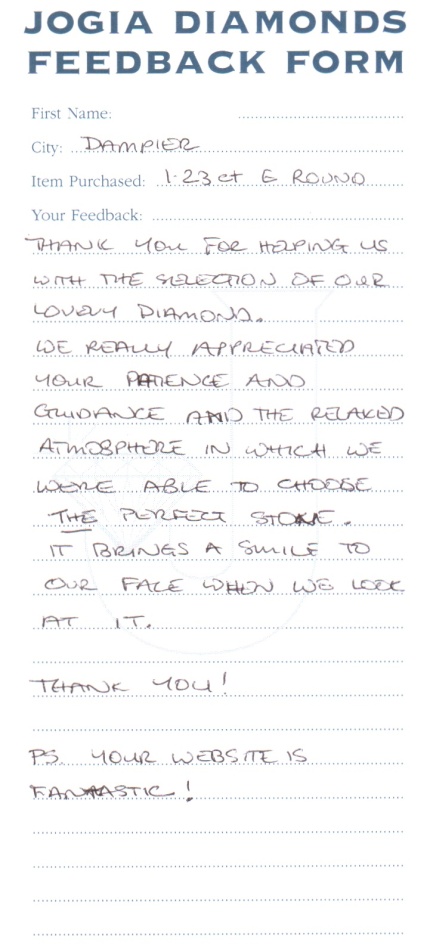 JOGIA DIAMONDS
FEEDBACK FORM
First Name:
City: DAMPIER
Item Purchased: 1.23 ct E ROUND
Your Feedback:
THANK YOU FOR HELPING US
WITH THE SELECTION OF OUR
LOVELY DIAMOND.
WE REALLY APPRECIATED
YOUR PATIENCE AND
GUIDANCE AND THE RELAXED
ATMOSPHERE IN WHICH WE
WERE ABLE TO CHOOSE
THE PERFECT STONE.
IT BRINGS A SMILE TO
OUR FACE WHEN WE LOOK
AT IT.
THANK YOU!
PS. YOUR WEBSITE IS
FANTASTIC!